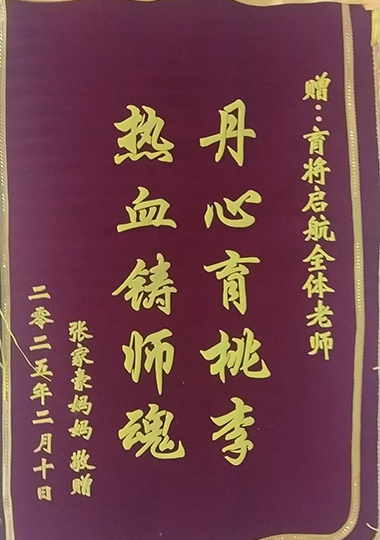 赠：育将启航全体老师
丹心育桃李
热血铸师魂
张家豪妈妈 敬赠
二零二五年二月十日